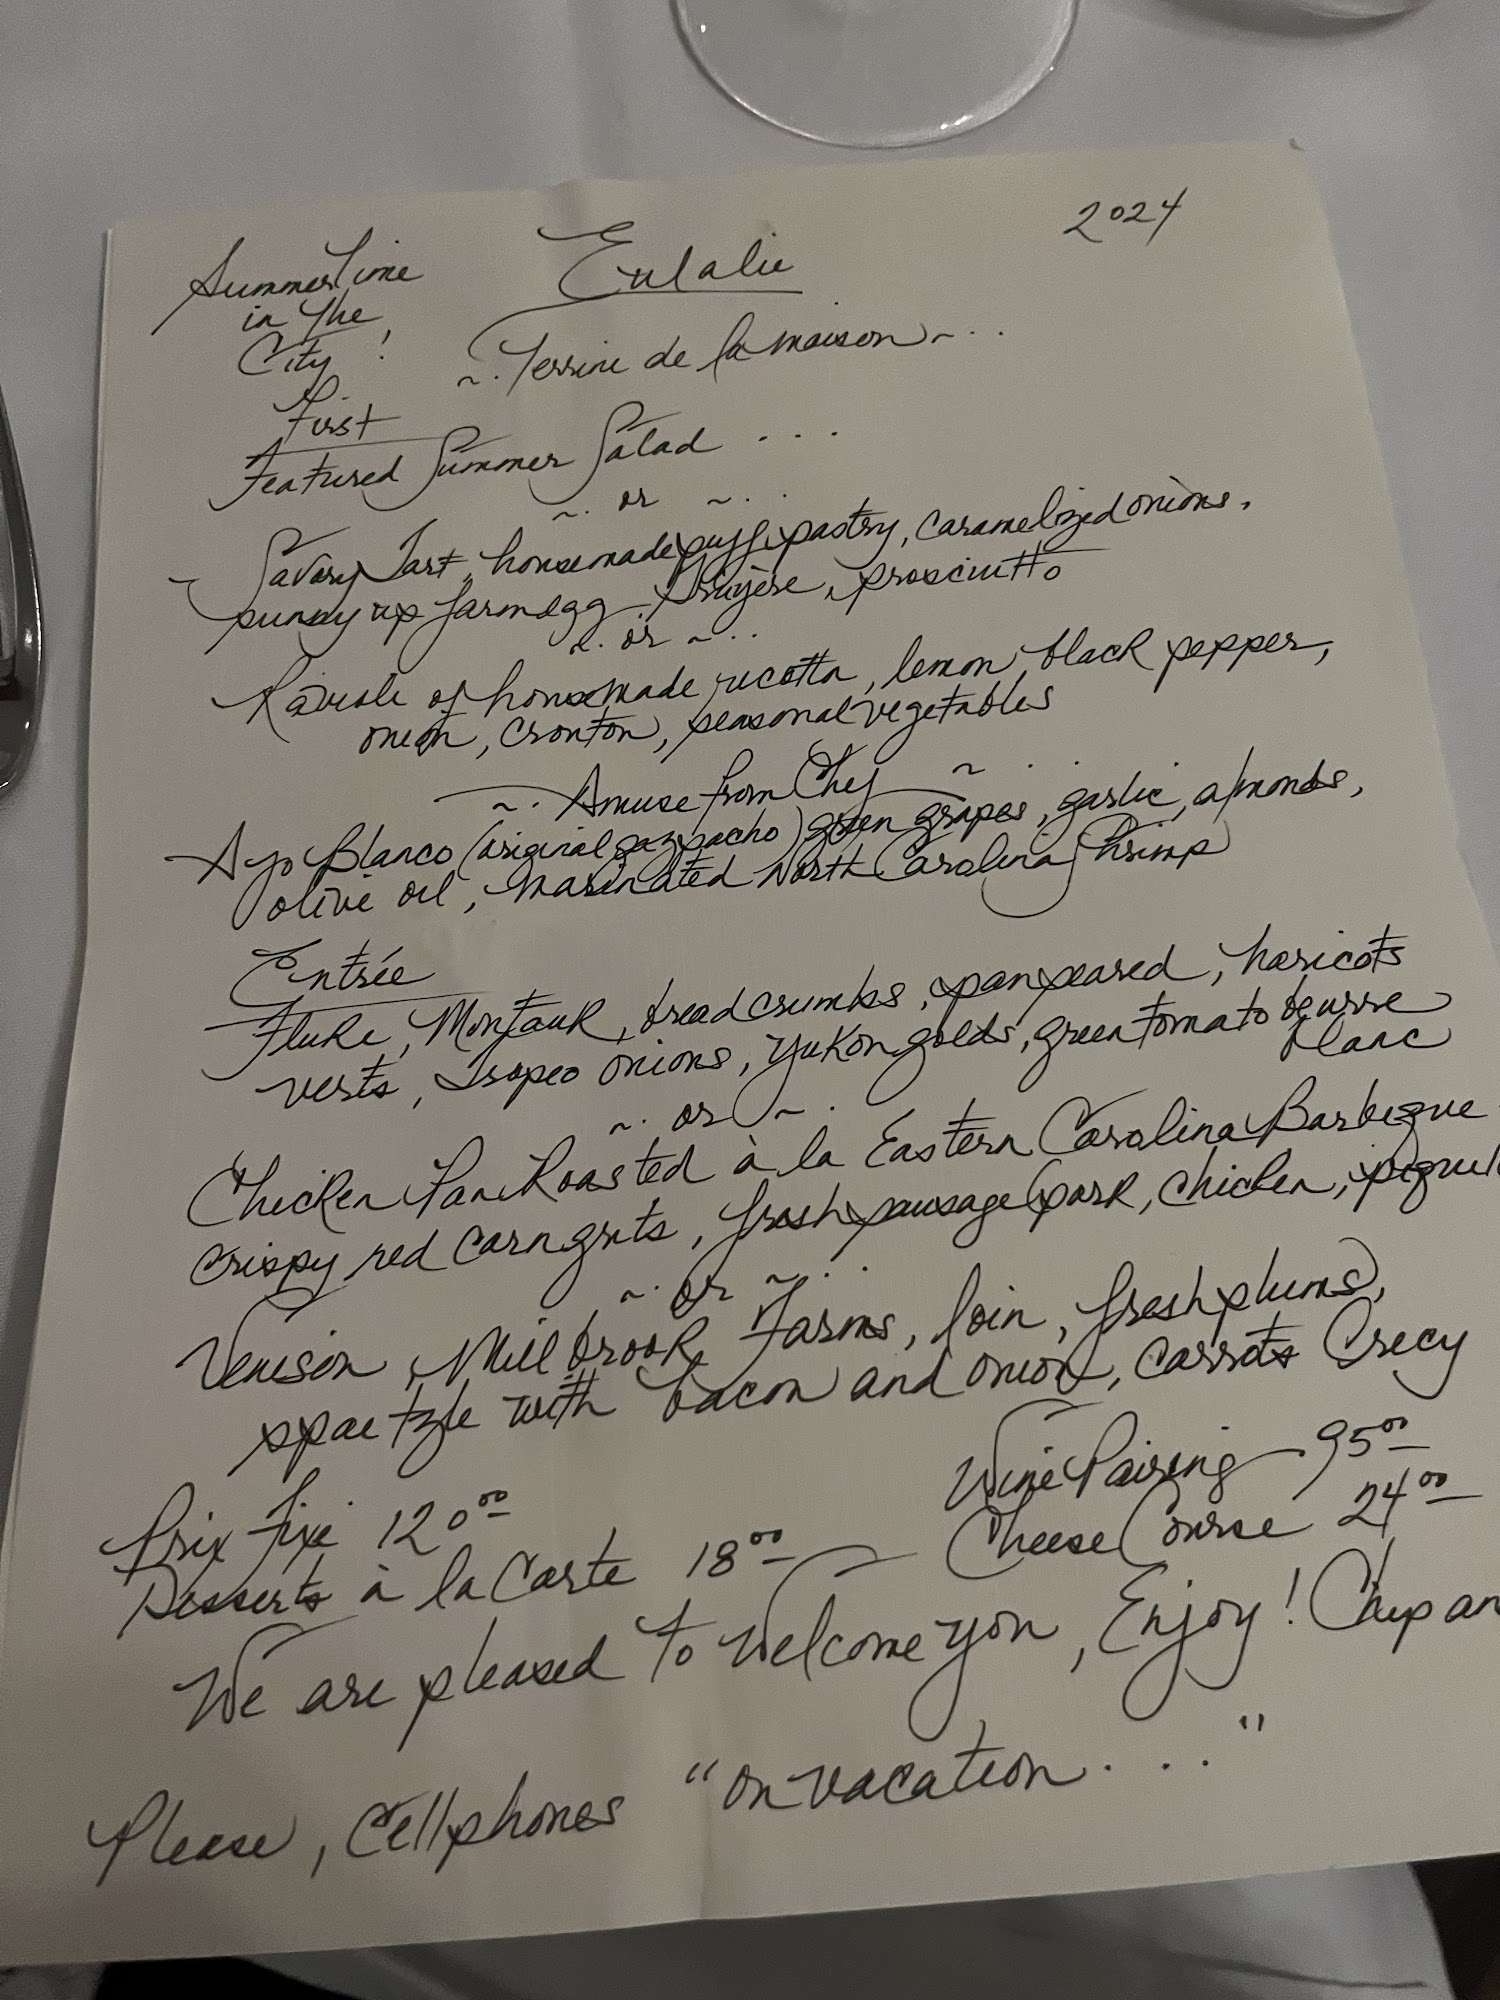 Summertime in the City!
Eulalie
2024
~. Terrine de la maison ~...
First
Featured Summer Salad ...
~. or ~..
Savory Tart, homemade puff pastry, caramelized onions,
sunny up farm egg, Gruyère, prosciutto
~. or ~..
Raviole of homemade ricotta, lemon, black pepper,
onion, crouton, seasonal vegetables
~. Amuse from Chef ~..
Ajo Blanco (original gazpacho) green grapes, garlic, almonds,
olive oil, marinated North Carolina Shrimp
Entrée
Fluke, Montauk, breadcrumbs, pan seared, haricots
verts, Tropeo onions, Yukon golds, green tomato beurre
blanc
~. or ~.
Chicken Pan Roasted à la Eastern Carolina Barbeque
crispy red corn grits, fresh sausage (pork, chicken,
~. or ~..
Venison, Millbrook Farms, loin, fresh plums,
spaetzle with bacon and onion, carrots Crecy
Wine Pairing 95.00
Prix Fixe 120.00
Cheese Course 24.00
Desserts à la Carte 18.00
We are pleased to welcome you, Enjoy! Chip an
Please, Cellphones "on vacation..."